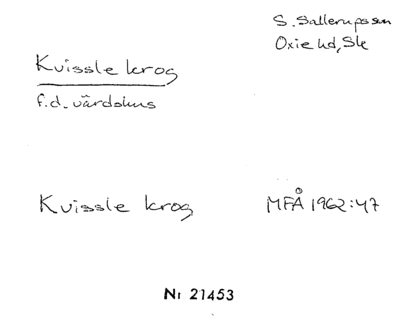 S. Sallerups sn
Oxie hd, Sk
Kvissle krog
f.d. värdshus
Kvissle krog MFÅ 1962:47
Nr 21453